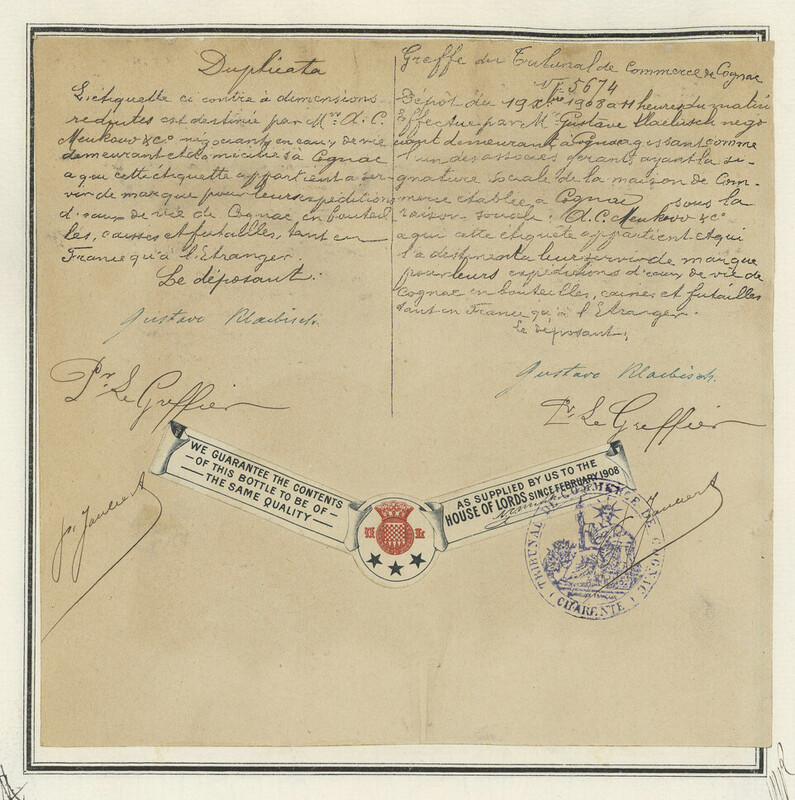 Duplicata
L'étiquette ci contre à dimensions
reduites est destinée par Mrs A. C.
Meukow & Co négociants en eaux de vie
demeurant et domiciliés à Cognac
a qui cette étiquette appartient a ser-
vir de marque pour leurs expeditions
d'eaux de vie de Cognac en bouteil
les, caisses et futailles, tant en
France qu'à l'Etranger.
Le déposant:
Gustave Klaebisch.
Pr Le Greffier
Greffe du Tribunal de Commerce de Cognac
No 5674
Dépot du 19 Xbre 1908 a 11 heures du matin
Effectué par Mr Gustave Klaebisch nego
ciant demeurant à Cognac agissant comme
l'un des associés gerants ayant la si-
gnature sociale de la maison de Com-
merce établie à Cognac sous la
raison sociale: A. C. Meukow & Co
a qui cette étiquette appartient et qui
l'a destinent a leur servir de marque
pour leurs expeditions d'eaux de vie de
Cognac en bouteilles, caisses et futailles
tant en France qu'à l'Etranger.
Le déposant:
Gustave Klaebisch.
Pr Le Greffier
WE GUARANTEE THE CONTENTS
OF THIS BOTTLE TO BE OF
THE SAME QUALITY
AS SUPPLIED BY US TO THE
HOUSE OF LORDS SINCE FEBRUARY 1908
TRIBUNAL DE COMMERCE DE COGNAC
(CHARENTE)